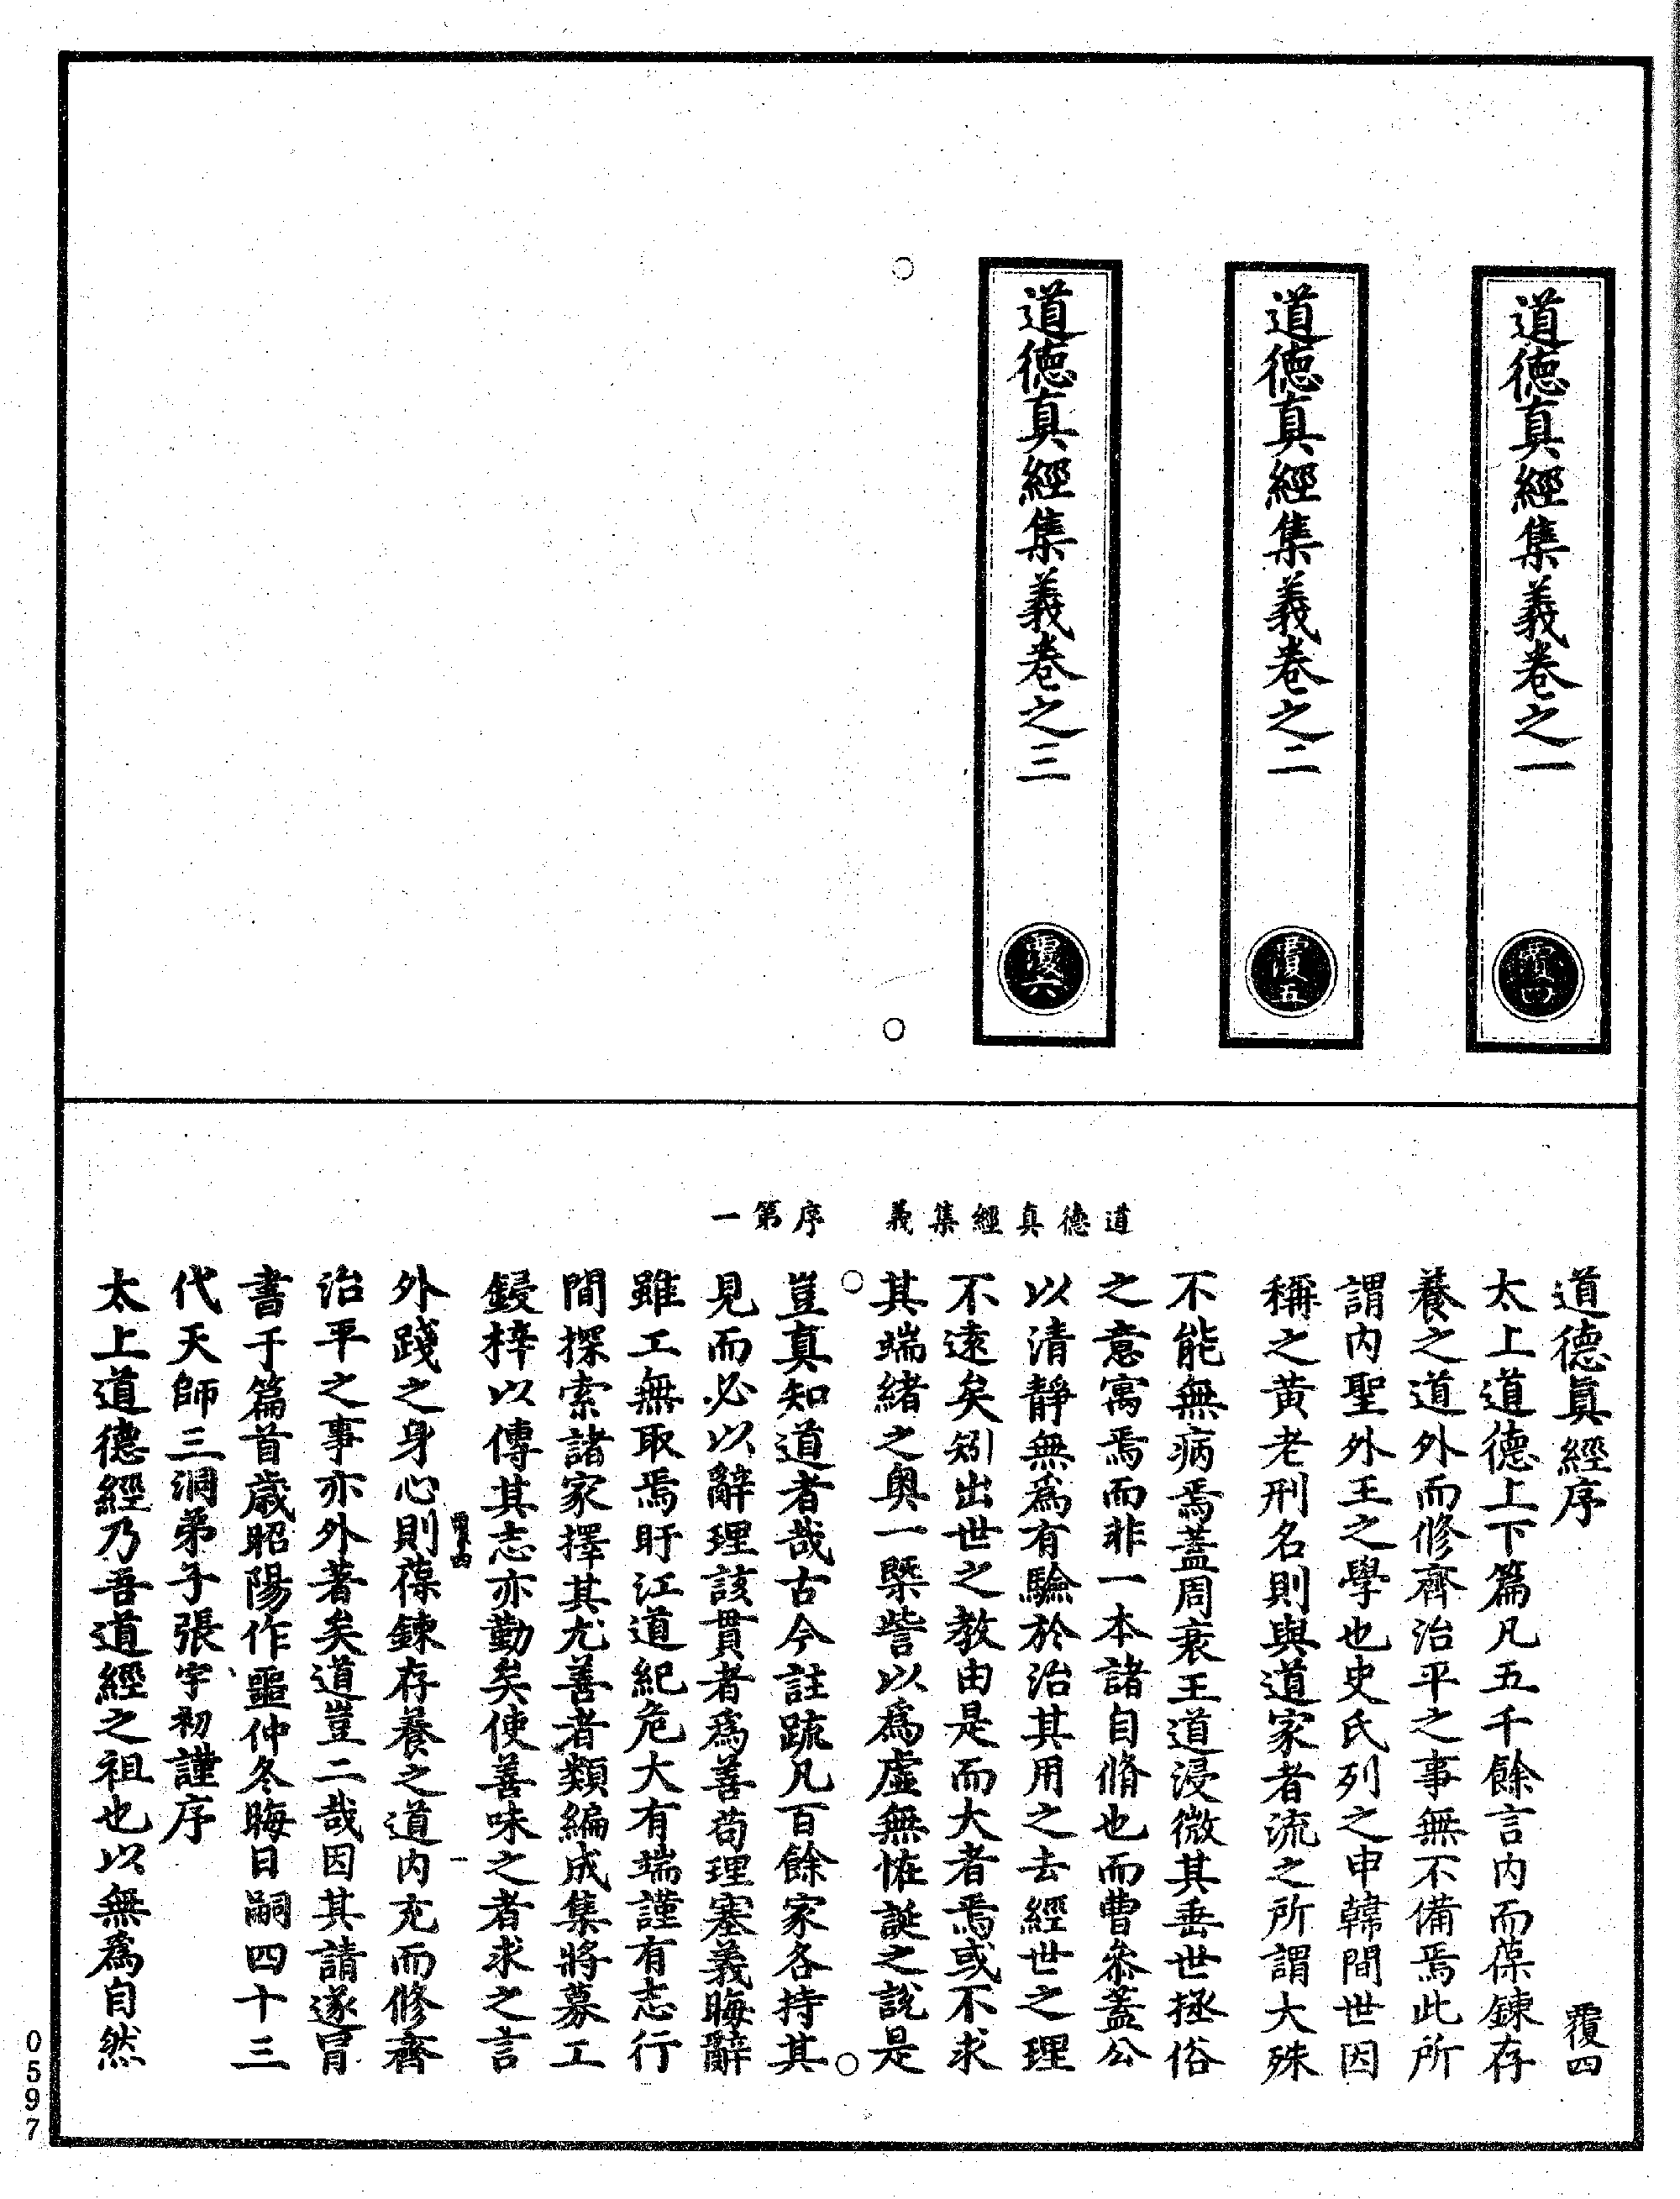 道德真經集義卷之一
覆四
道德真經集義卷之二
覆五
道德真經集義卷之三
覆六
道德真經集義　序第一
道德眞經序　覆四
太上道德上下篇凡五千餘言内而葆鍊存
養之道外而修齊治平之事無不備焉此所
謂内聖外王之學也史氏列之申韓間世因
稱之黃老刑名則與道家者流之所謂大殊
不能無病焉蓋周衰王道浸微其垂世拯俗
之意寓焉而非一本諸自脩也而曹叅蓋公
以清靜無爲有驗於治其用之去經世之理
不遠矣矧出世之教由是而大者焉或不求
其端緒之奥一槩訾以爲虛無恠誕之說是
豈真知道者哉古今註疏凡百餘家各持其
見而必以辭理該貫者爲善苟理塞義晦辭
雖工無取焉盱江道紀危大有端謹有志行
間探索諸家擇其尤善者類編成集將募工
鋟梓以傳其志亦勤矣使善味之者求之言
外踐之身心則葆鍊存養之道内充而脩齊
治平之事亦外著矣道豈二哉因其請遂冒
書于篇首歲昭陽作噩仲冬晦日嗣四十三
代天師三洞弟子張宇初謹序
太上道德經乃吾道經之祖也以無爲自然
0597